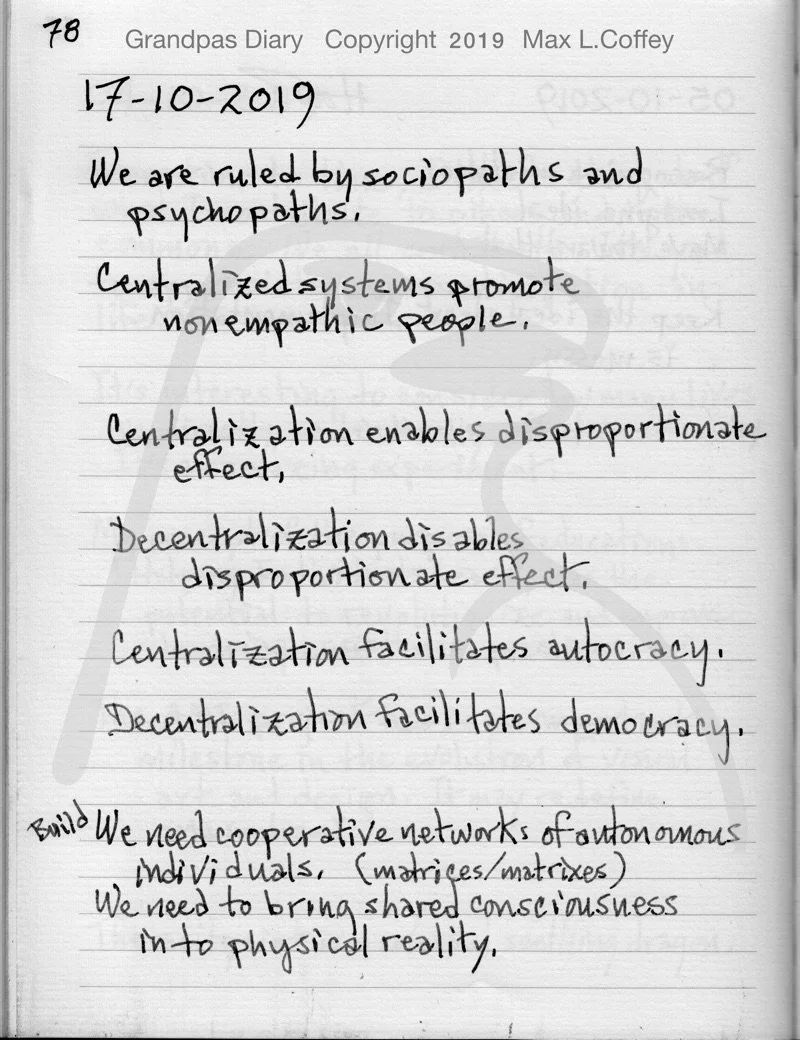 78
Grandpas Diary Copyright 2019 Max L.Coffey
17-10-2019
We are ruled by sociopaths and
psychopaths.
Centralized systems promote
nonempathic people.
Centralization enables disproportionate
effect.
Decentralization disables
disproportionate effect.
Centralization facilitates autocracy.
Decentralization facilitates democracy.
Build We need cooperative networks of autonomous
individuals. (matrices/matrixes)
We need to bring shared consciousness
into physical reality.